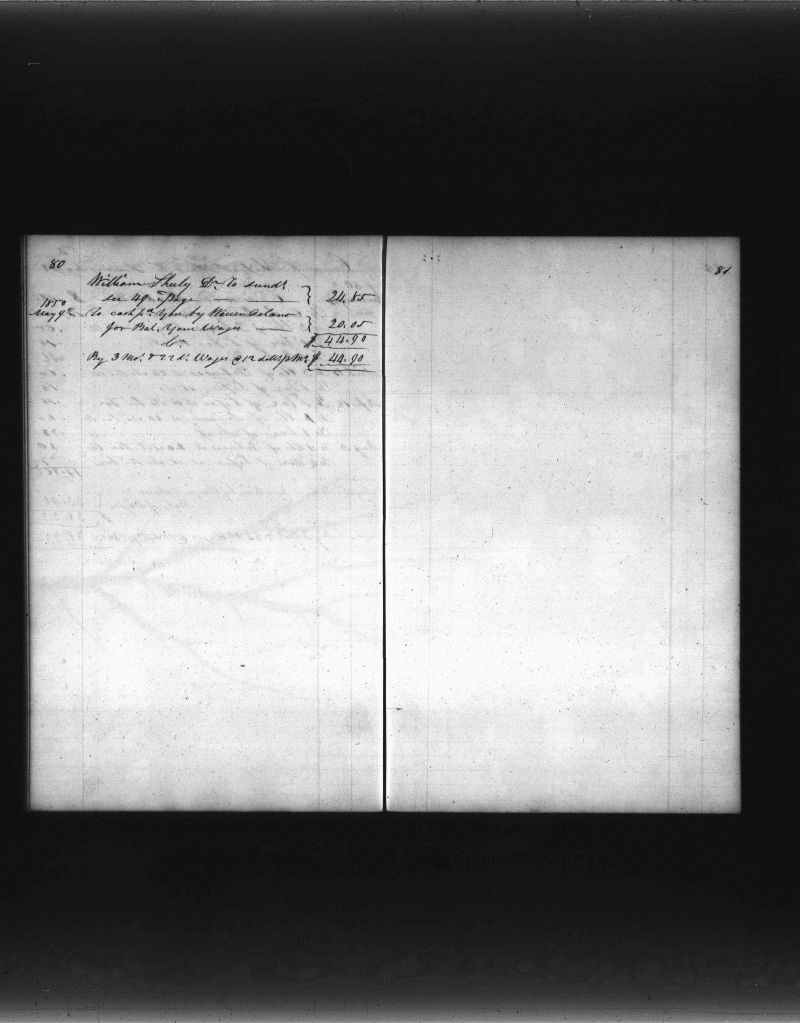 80
William Shuly Dr. To sunds.
see 49 Page 24.85
1850
May 9th To cash pd. You by Warren Delano
for Bal. Your Wages 20.05
$ 44.90
Cr.
By 3 Mos. & 22 ds. Wages @ 12 dolls p Mo. $ 44.90
81